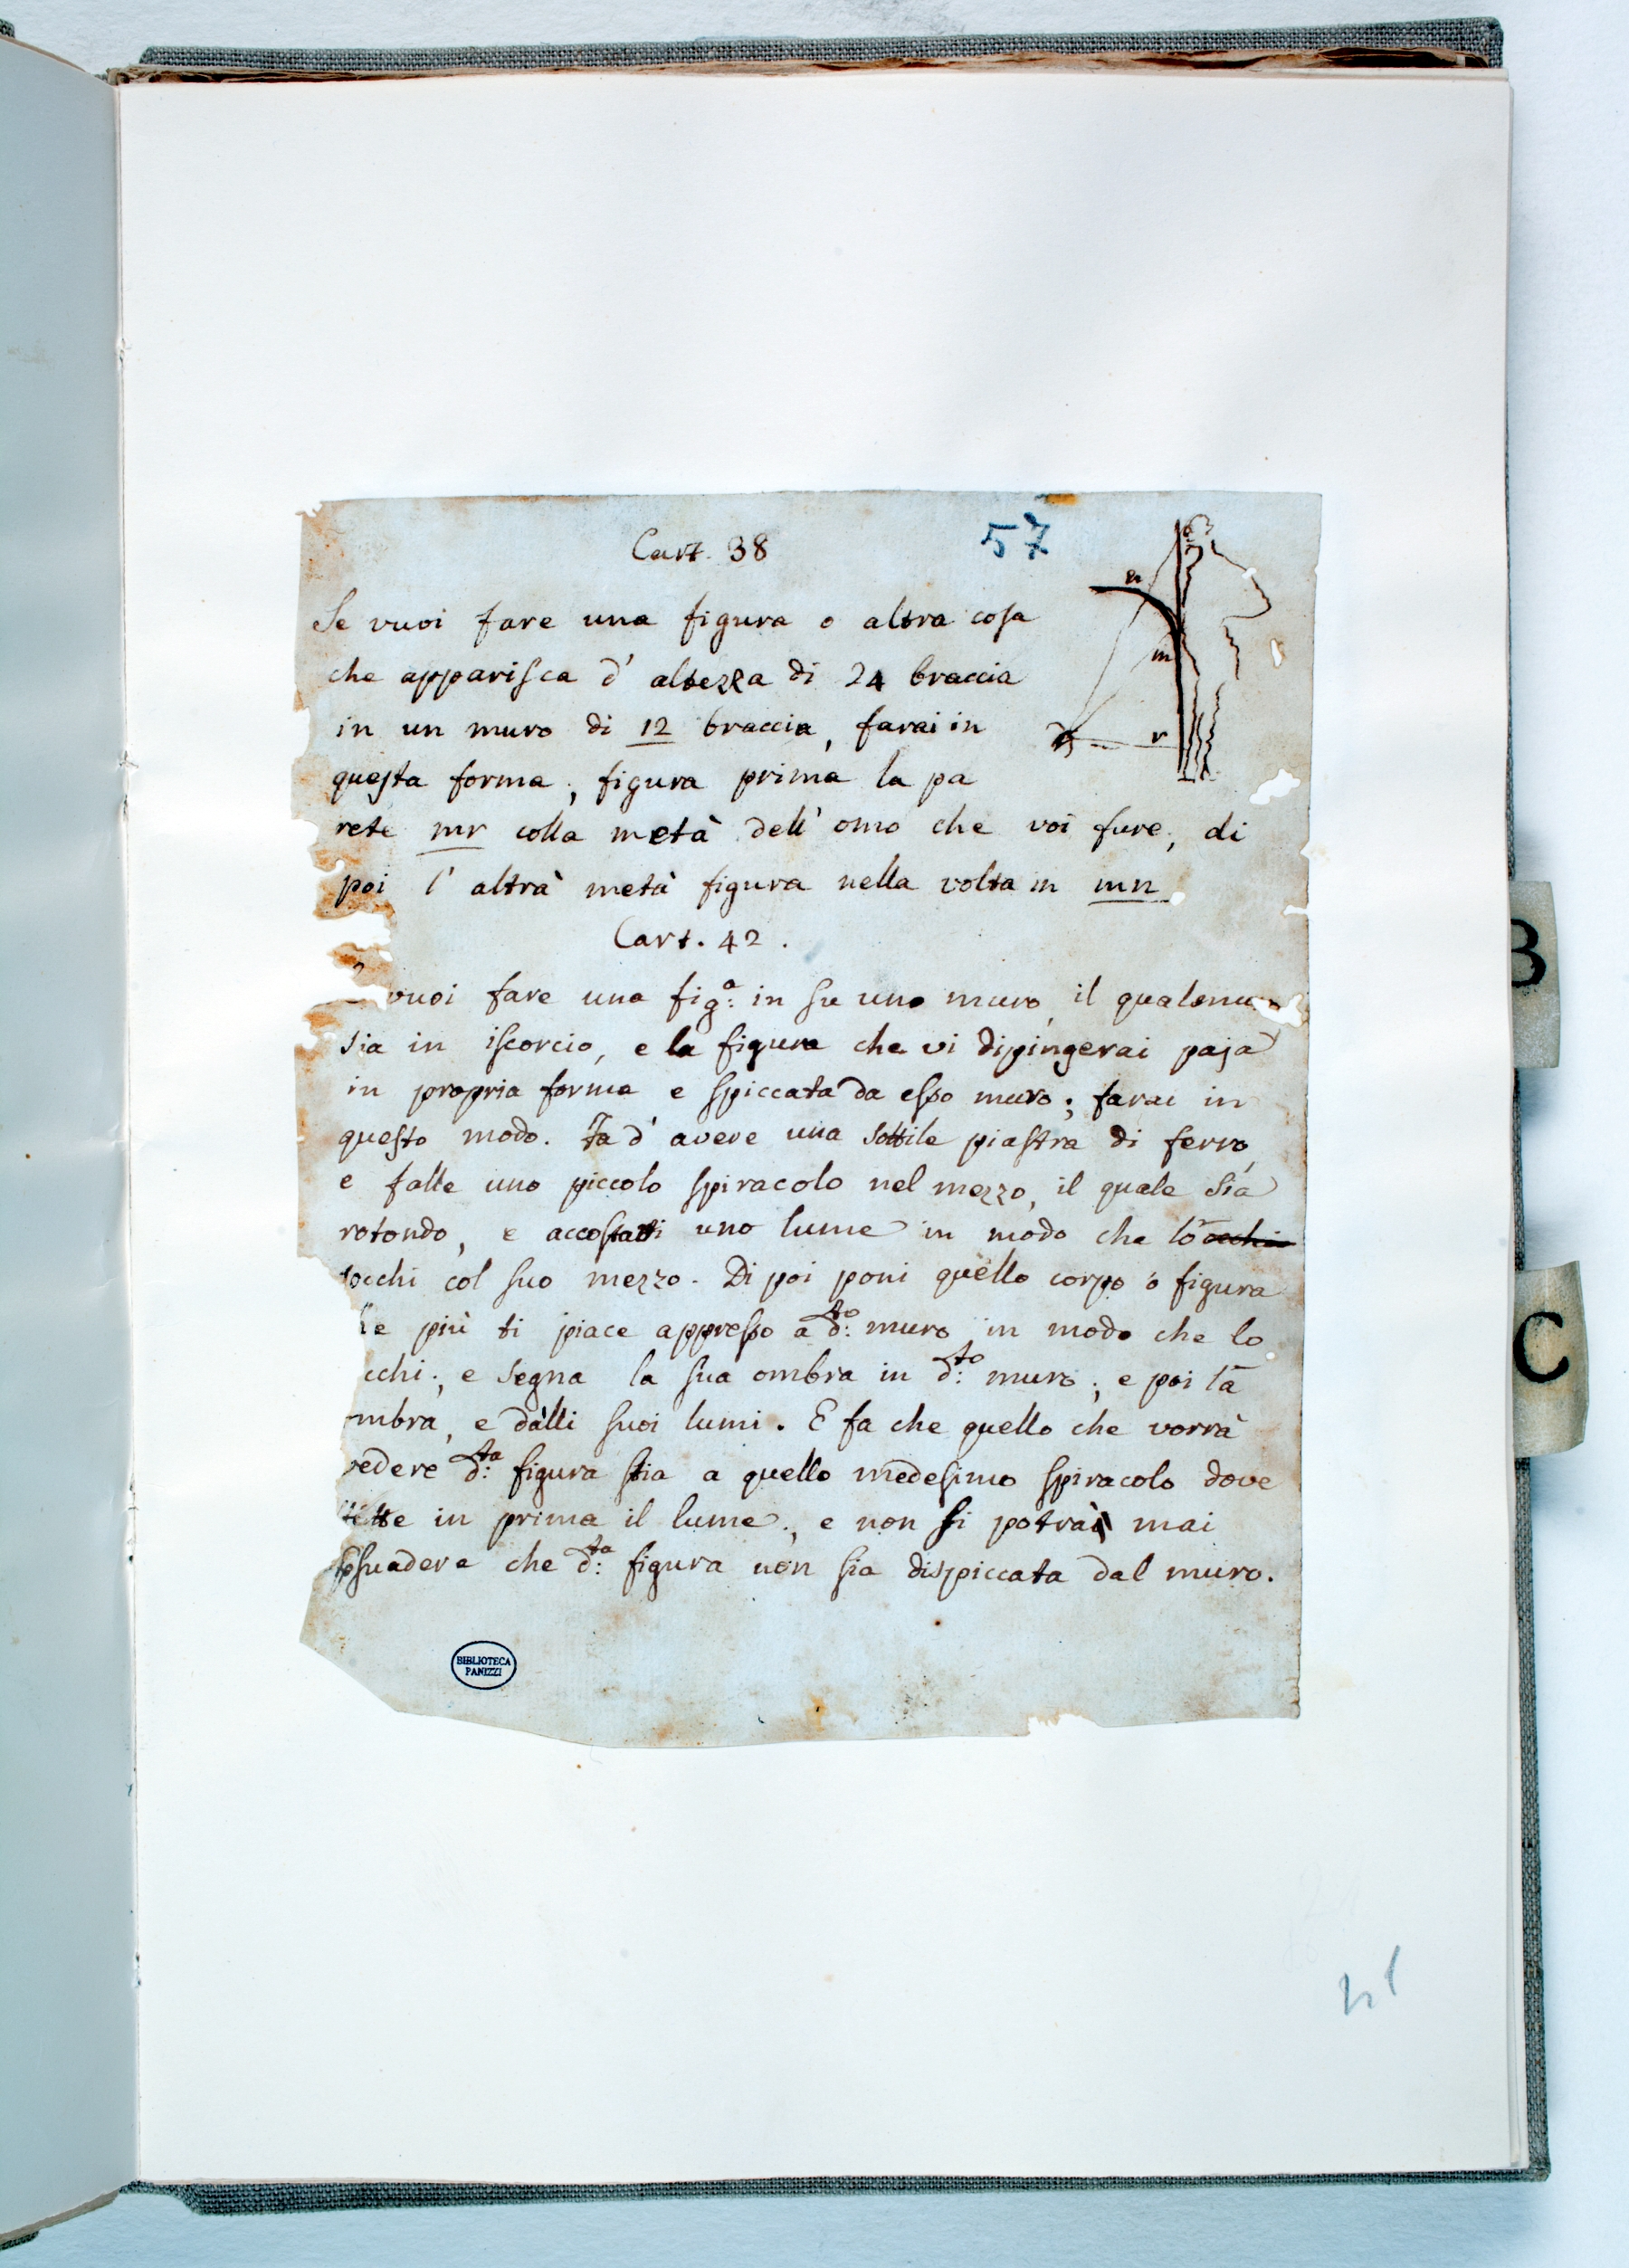 Cart. 38
57
n
Se vuoi fare una figura o altra cosa
che apparisca d' altezza di 24 braccia
m
in un muro di 12 braccia, farai in
r
questa forma; figura prima la pa
rete mr colla metà dell' omo che voi fare; di
poi l' altrà metà figura nella volta in mn
Cart. 42.
vuoi fare una fig:a in su uno muro, il quale mu
sia in iscorcio, e la figura che vi dipingerai paja
in propria forma e spiccata da esso muro; farai in
questo modo. Fa d' avere una sottile piastra di ferro,
e falle uno piccolo spiracolo nel mezzo, il quale sia
rotondo, e accostati uno lume in modo che lo occhi
occhi col suo mezzo. Di poi poni quello corpo o figura
he più ti piace appresso a d:to muro in modo che lo
cchi; e segna la sua ombra in d:to muro; e poi fà
mbra, e dàlli suoi lumi. E fa che quello che vorrà
vedere d:ta figura stia a quello medesimo spiracolo dove
stette in prima il lume; e non si potrai mai
suadere che d:ta figura non sia dispiccata dal muro.
BIBLIOTECA
PANIZZI
B
C